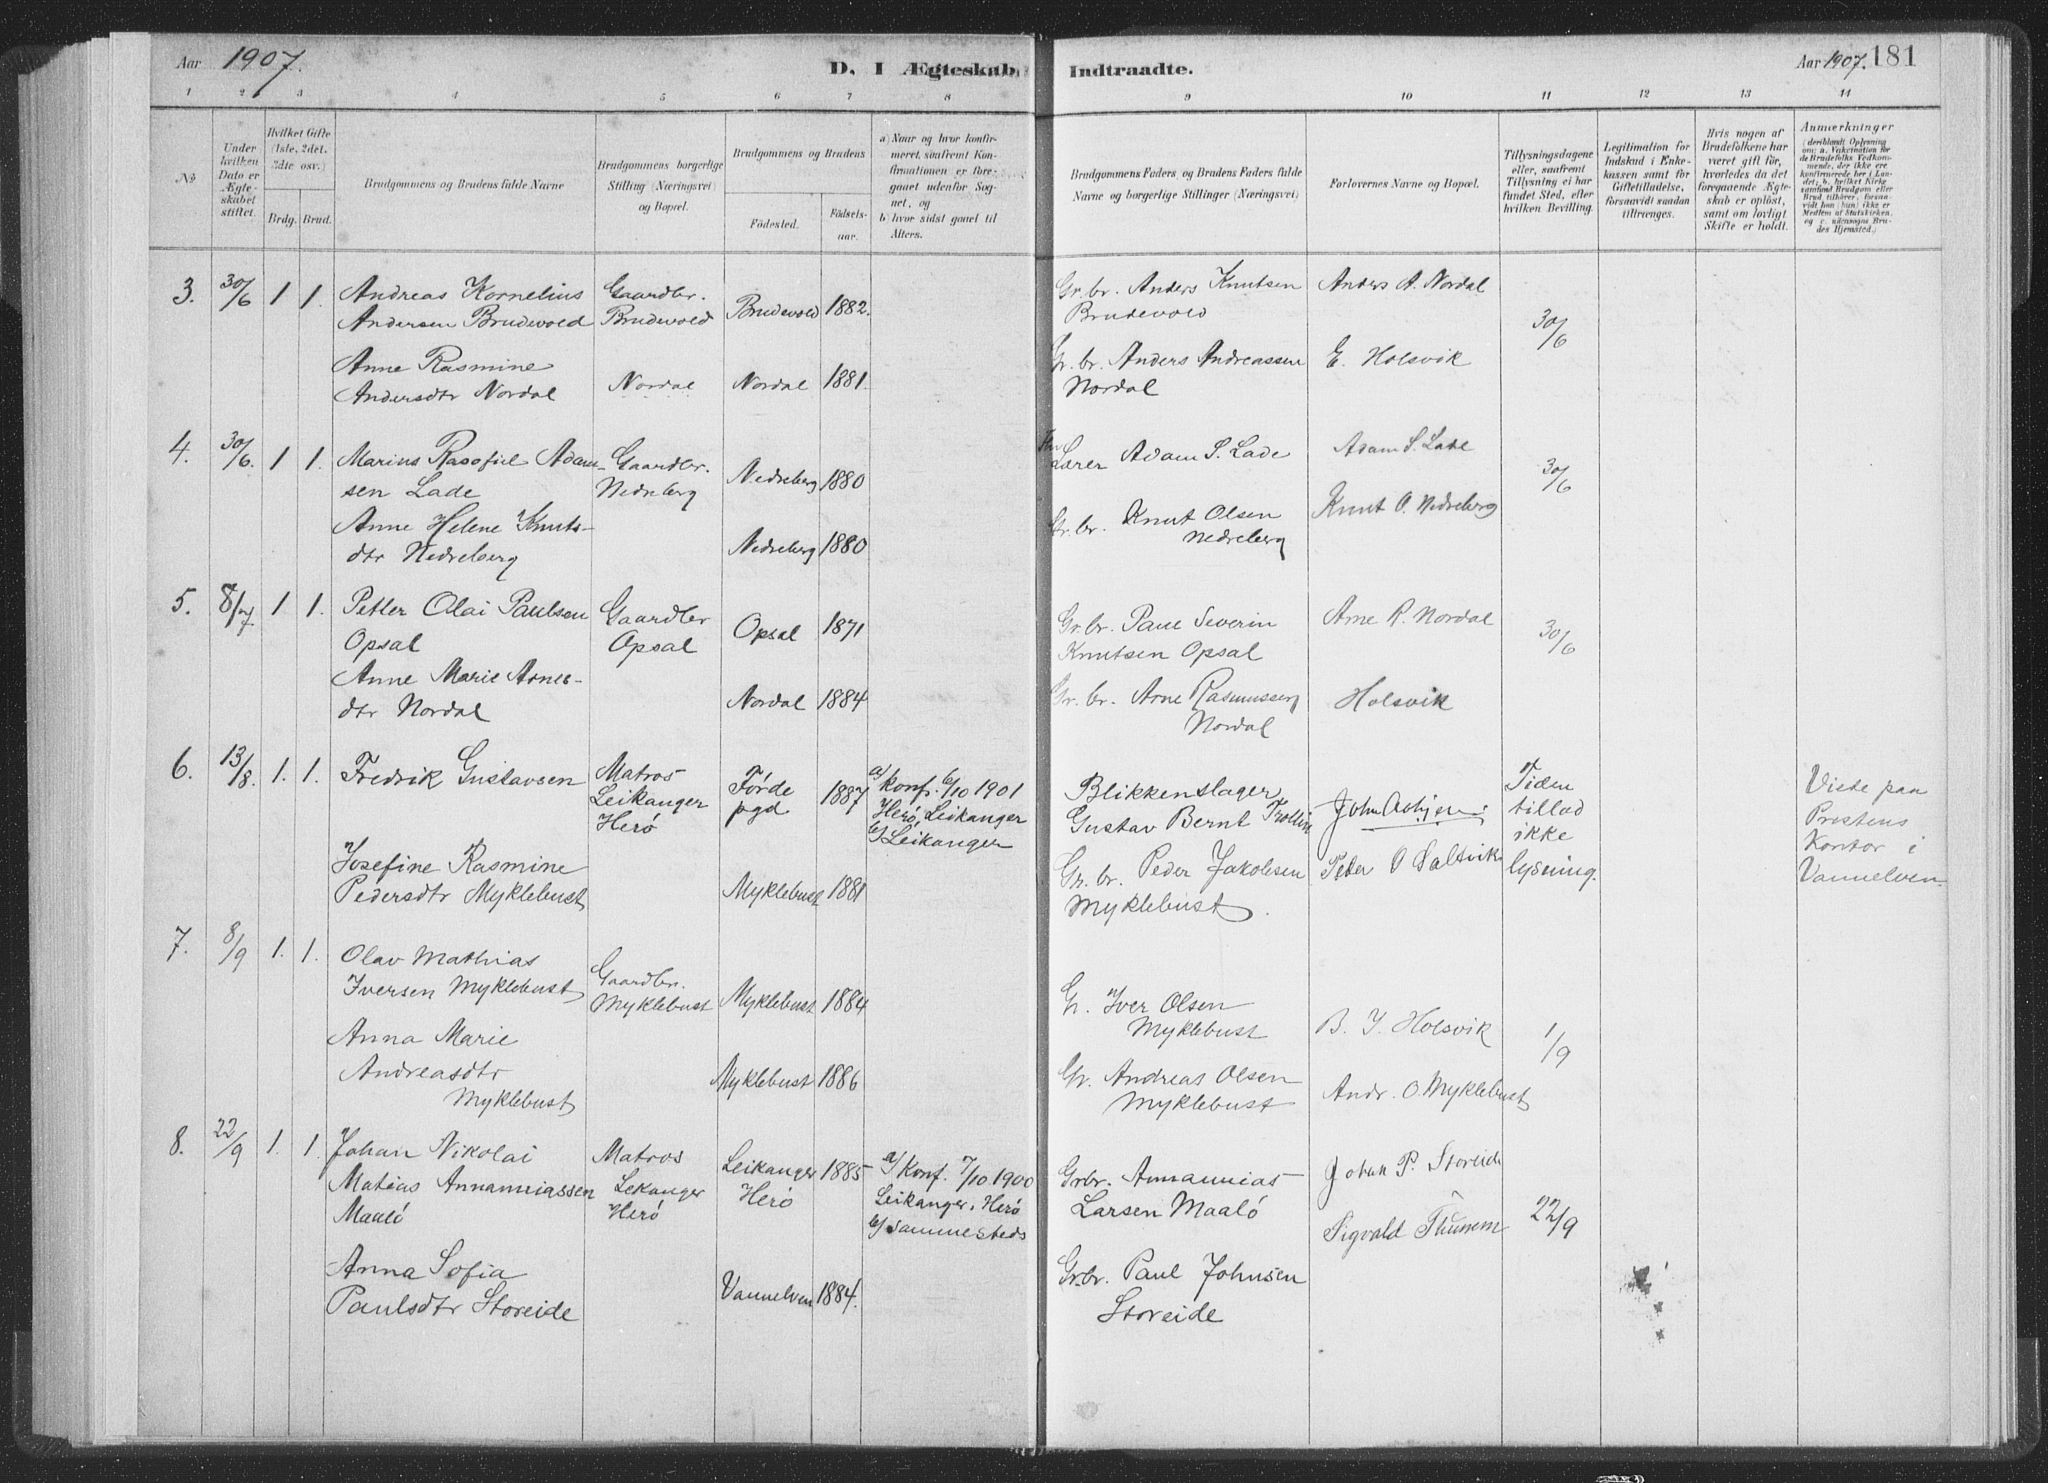 Aar 1907.
D. I Ægteskab Indtraadte.
Aar 1907. 181
1 2 3 4 5 6 7 8 9 10 11 12 13 14
№
Under
hvilken
Dato er
Ægte-
skabet
stiftet.
Hvilket Gifte
(1ste, 2det,
3die osv.)
Brdg. Brud.
Brudgommens og Brudens fulde Navne
Brudgommens borgerlige
Stilling (Næringsvei)
og Bopæl.
Brudgommens og Brudens
Fødested.
Fødsels-
aar.
a) Naar og hvor konfir-
meret, saafremt Kon-
firmationen er fore-
gaaet udenfor Sog-
net, og
b) hvor sidst gaaet til
Alters.
Brudgommens Faders, og Brudens Faders fulde
Navne og borgerlige Stillinger (Næringsvei)
Forlovernes Navne og Bopæl.
Tillysningsdagene
eller, saafremt
Tillysning ei har
fundet Sted, efter
hvilken Bevilling.
Legitimation for
Indskud i Enke-
kassen samt for
Giftetilladelse,
forsaavidt saadan
tiltrænges.
Hvis nogen af
Brudefolkene har
været gift før,
hvorledes da det
foregaaende Ægte-
skab er opløst,
samt om lovligt
Skifte er holdt.
Anmærkninger
(deriblandt Oplysning
om: a. Vakcination for
de Brudefolks Vedkom-
mende, der ikke ere
konfirmerede her i Lan-
det; b. hvilket Kirke-
samfund Brudgom eller
Brud tilhører, forsaa-
vidt han (hun) ikke er
Medlem af Statskirken,
og c. udensogns Bru-
des Hjemsted.)
3. 30/6 1 1. Andreas Kornelius Gaardbr. Brudevold 1882. Gr. br. Anders Knutsen Anders A. Nordal 30/6
Andersen Brudevold Brudevold Brudevold
Anne Rasmine Nordal Nordal 1881. Gr. br. Anders Andreassen E. Holsvik
Andersdtr Nordal Nordal
4. 30/6. 1 1. Marius Rasofiel Adam- Gaardbr. Nedreberg 1880 Lærer Adam S. Lade Adam S. Lade 30/6
sen Lade Nedreberg
Anne Helene Knuts- Nedreberg 1880 Gr. br. Knut Olsen Knut O. Nedreberg
dtr Nedreberg Nedreberg
5. 8/7 1 1. Petter Olai Paulsen Gaardbr Opsal 1871 Gr. br. Paul Severin Arne R. Nordal 30/6
Opsal Opsal Knutsen Opsal
Anne Marie Arnes- Nordal 1884 Gr. br. Arne Rasmussen Holsvik
dtr Nordal Nordal
6. 13/8. 1. 1. Fredrik Gustavsen Matros Førde 1887 a/ konf. 6/10 1901 Blikkenslager Tiden Viete paa
Leikanger pgd Herø, Leikanger Gustav Bernt tillod Prestens
Herø b/ Leikanger ikke Kontor i
Josefine Rasmine Myklebust 1881 Gr. br. Peder Jakobsen Peter O Saltvik lysning. Vannelven.
Pedersdtr Myklebust Myklebust.
7. 8/9 1. 1. Olav Mathias Gaardbr. Myklebust 1884 G. Iver Olsen B. J. Holsvik 1/9
Iversen Myklebust Myklebust Myklebust
Anna Marie Myklebust 1886 Gr. Andreas Olsen Andr. O Myklebust
Andreasdtr Myklebust
Myklebust
8. 22/9 1. 1. Johan Nikolai Matros Leikanger 1885 a/ Konf. 7/10 1900 Grbr. Annanias Johan P. Storeide 22/9
Matias Annaniassen Lekanger Herø Leikanger, Herø Larsen Maalø
Maalø Herø b/ Sammesteds Sigvald Thunem
Anna Sofia Vannelven 1884. Grbr. Paul Johnsen
Paulsdtr Storeide Storeide